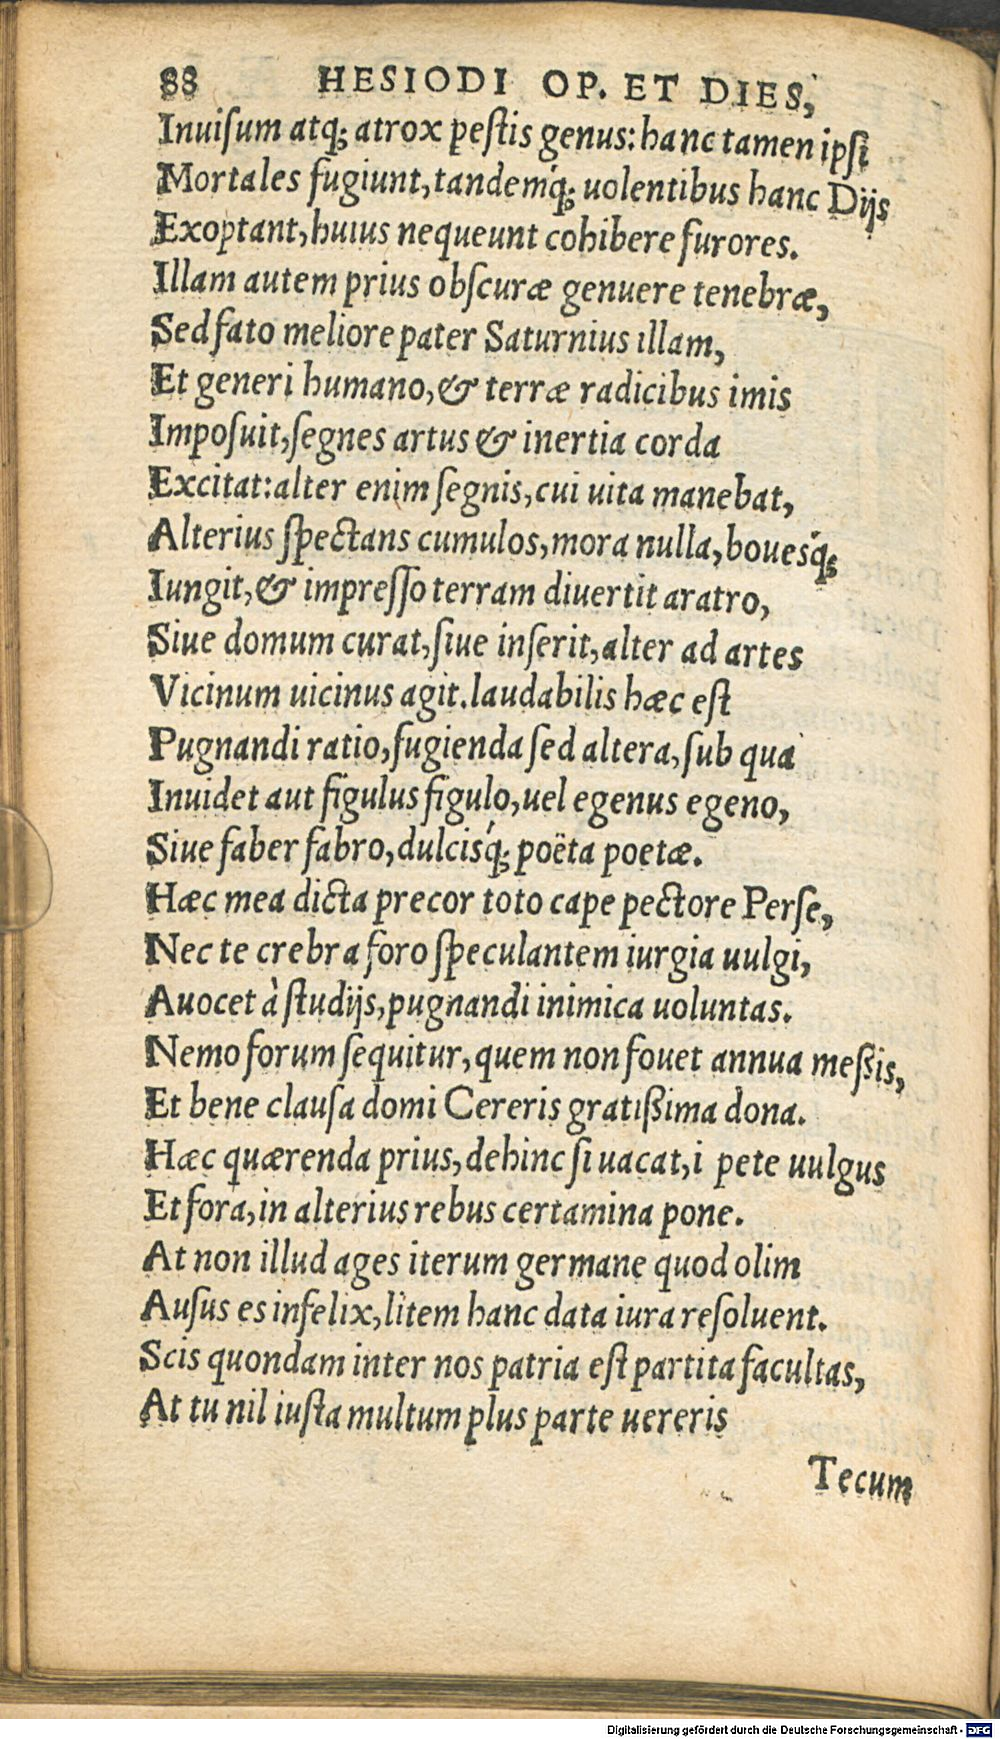 88 HESIODI OP. ET DIES,
Inuiſum atq; atrox peſtis genus: hanc tamen ipſi
Mortales fugiunt, tandemq́; uolentibus hanc Dijs
Exoptant, huius nequeunt cohibere furores.
Illam autem prius obſcuræ genuere tenebræ,
Sed fato meliore pater Saturnius illam,
Et generi humano, & terræ radicibus imis
Impoſuit, ſegnes artus & inertia corda
Excitat: alter enim ſegnis, cui uita manebat,
Alterius ſpectans cumulos, mora nulla, bouesq́;
Iungit, & impreſſo terram diuertit aratro,
Siue domum curat, ſiue inſerit, alter ad artes
Vicinum uicinus agit. laudabilis hæc eſt
Pugnandi ratio, fugienda ſed altera, ſub qua
Inuidet aut figulus figulo, uel egenus egeno,
Siue faber fabro, dulcisq́; poëta poetæ.
Hæc mea dicta precor toto cape pectore Perſe,
Nec te crebra foro ſpeculantem iurgia uulgi,
Auocet à ſtudijs, pugnandi inimica uoluntas.
Nemo forum ſequitur, quem non fouet annua meßis,
Et bene clauſa domi Cereris gratißima dona.
Hæc quærenda prius, dehinc ſi uacat, i pete uulgus
Et fora, in alterius rebus certamina pone.
At non illud ages iterum germane quod olim
Auſus es infelix, litem hanc data iura reſoluent.
Scis quondam inter nos patria eſt partita facultas,
At tu nil iuſta multum plus parte uereris
Tecum
Digitalisierung gefördert durch die Deutsche Forschungsgemeinschaft - DFG